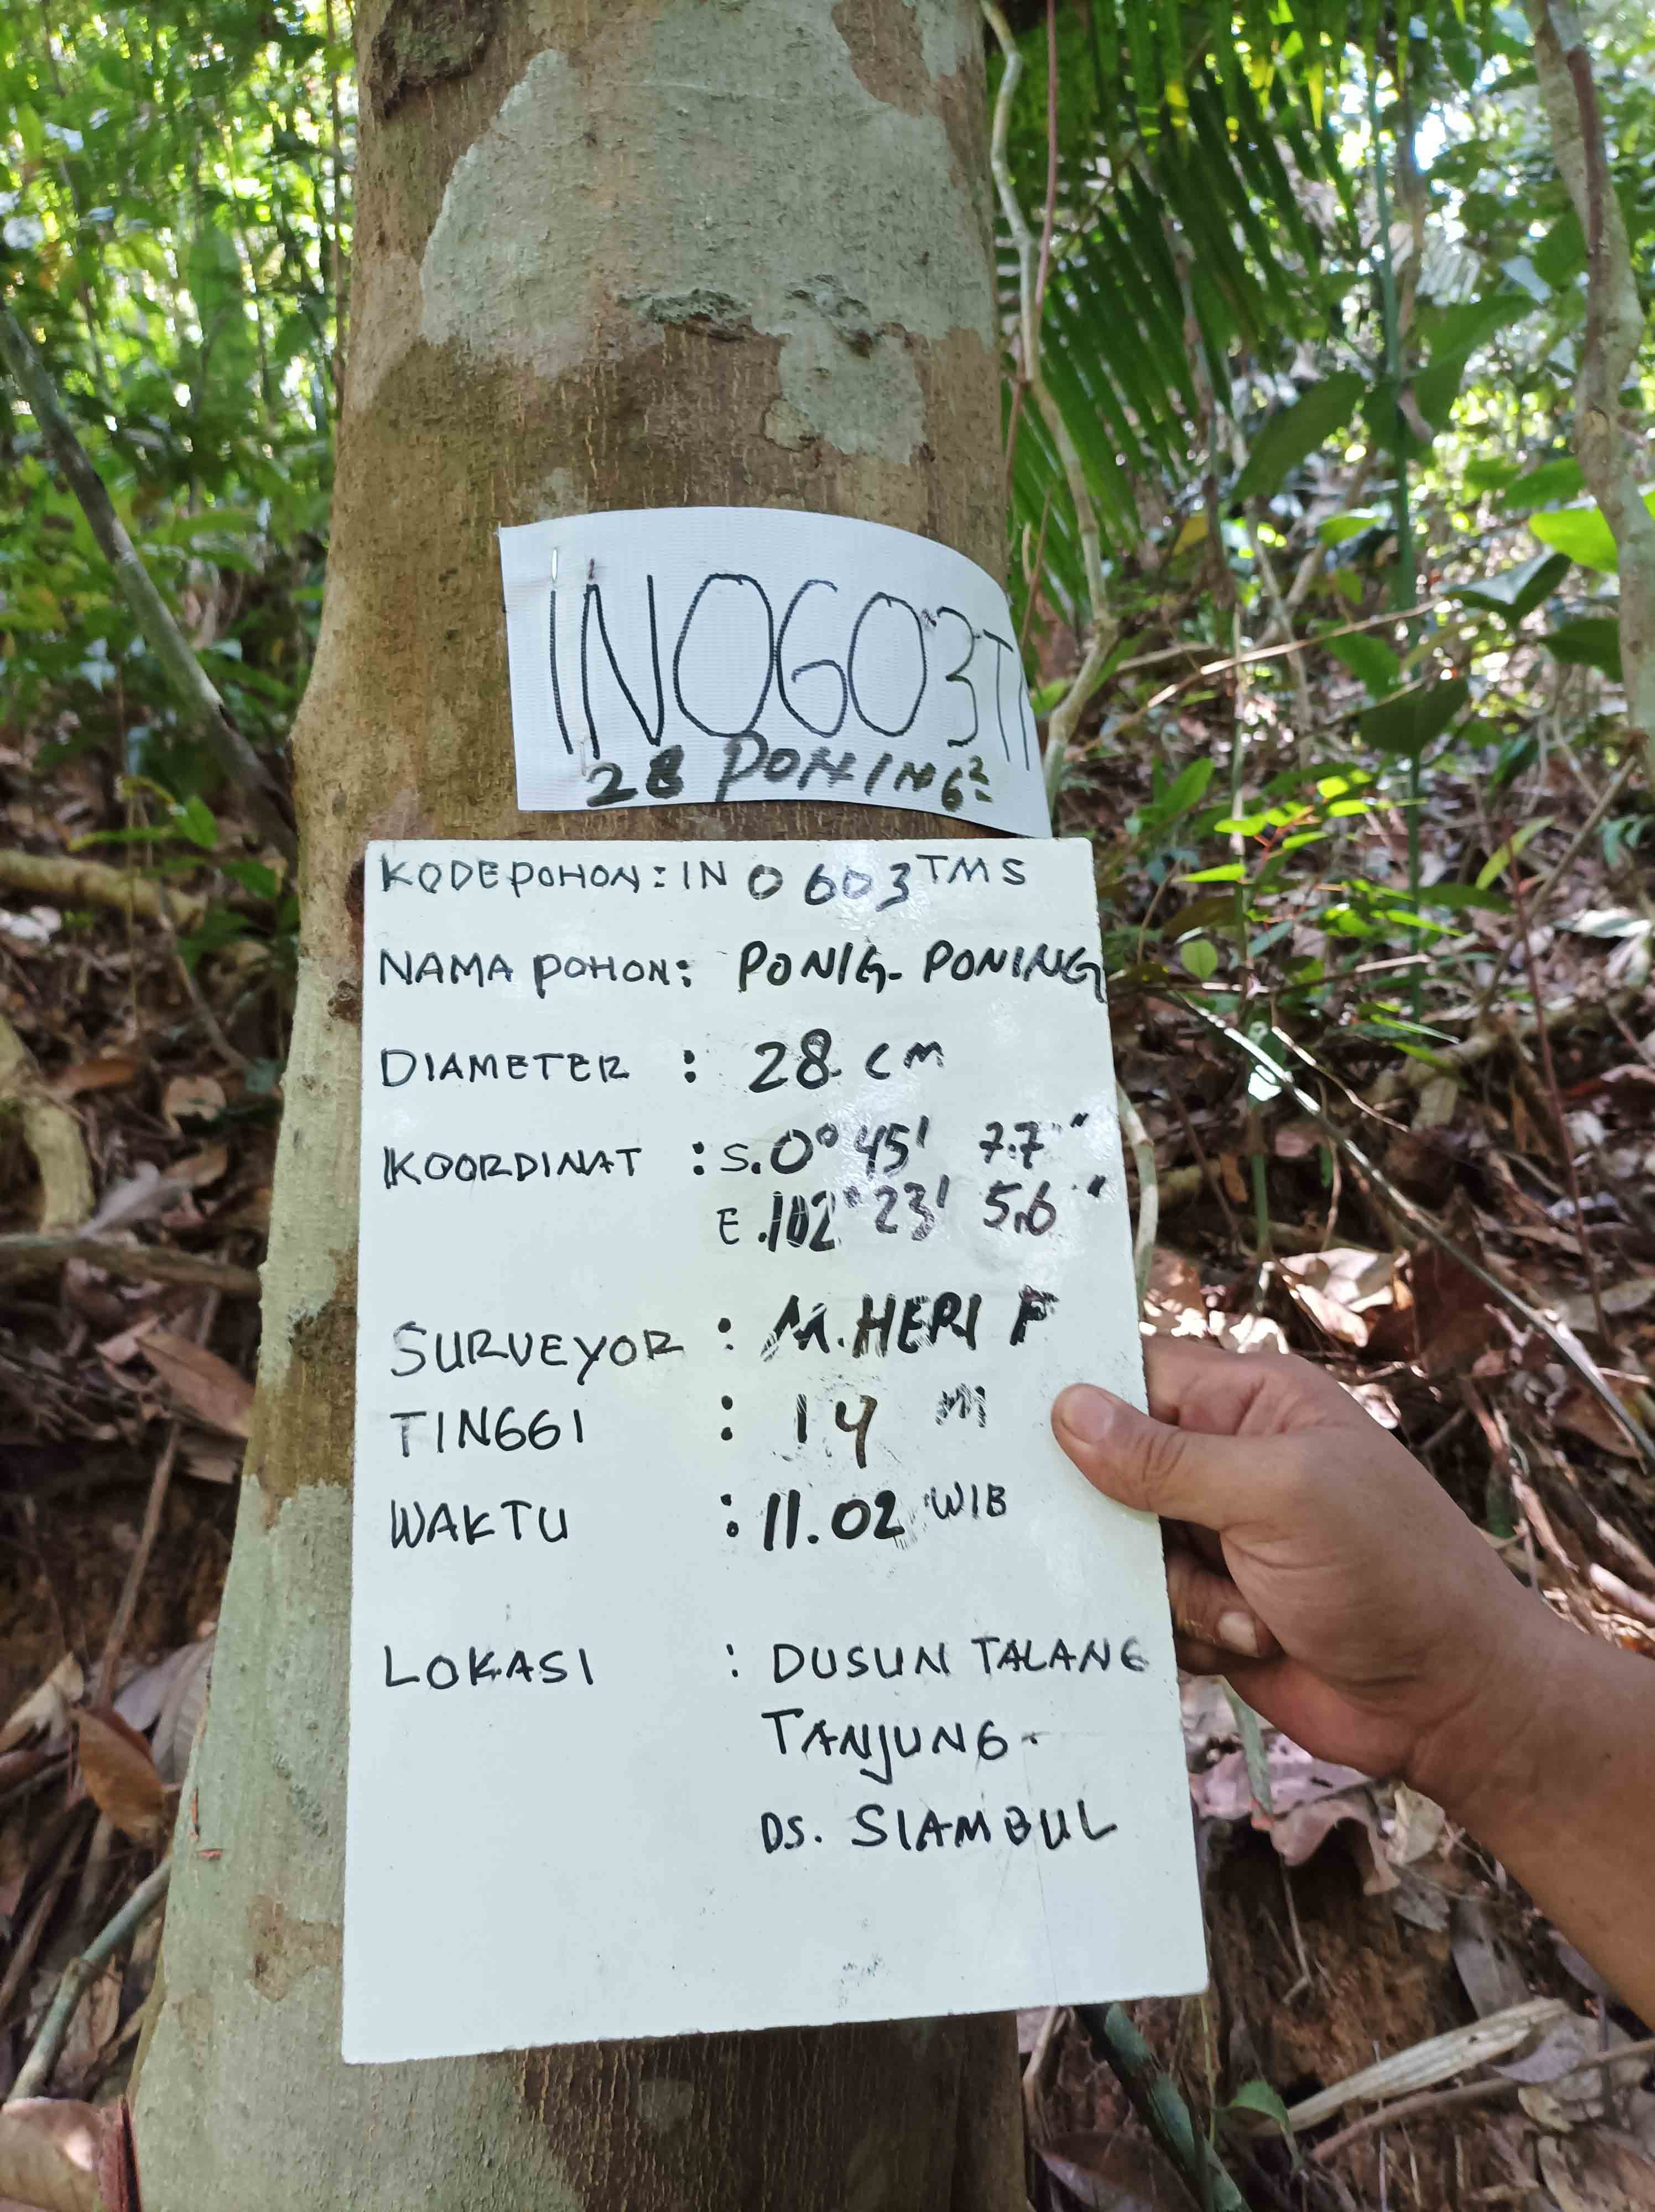 IN0603T
28 PONING²
KODE POHON : IN 0603 TMS
NAMA POHON : PONIG-PONING
DIAMETER : 28 CM
KOORDINAT : S. 0° 45' 7.7"
E. 102° 23' 5.6"
SURVEYOR : M. HERI F
TINGGI : 14 M
WAKTU : 11.02 WIB
LOKASI : DUSUN TALANG
TANJUNG.
DS. SIAMBUL